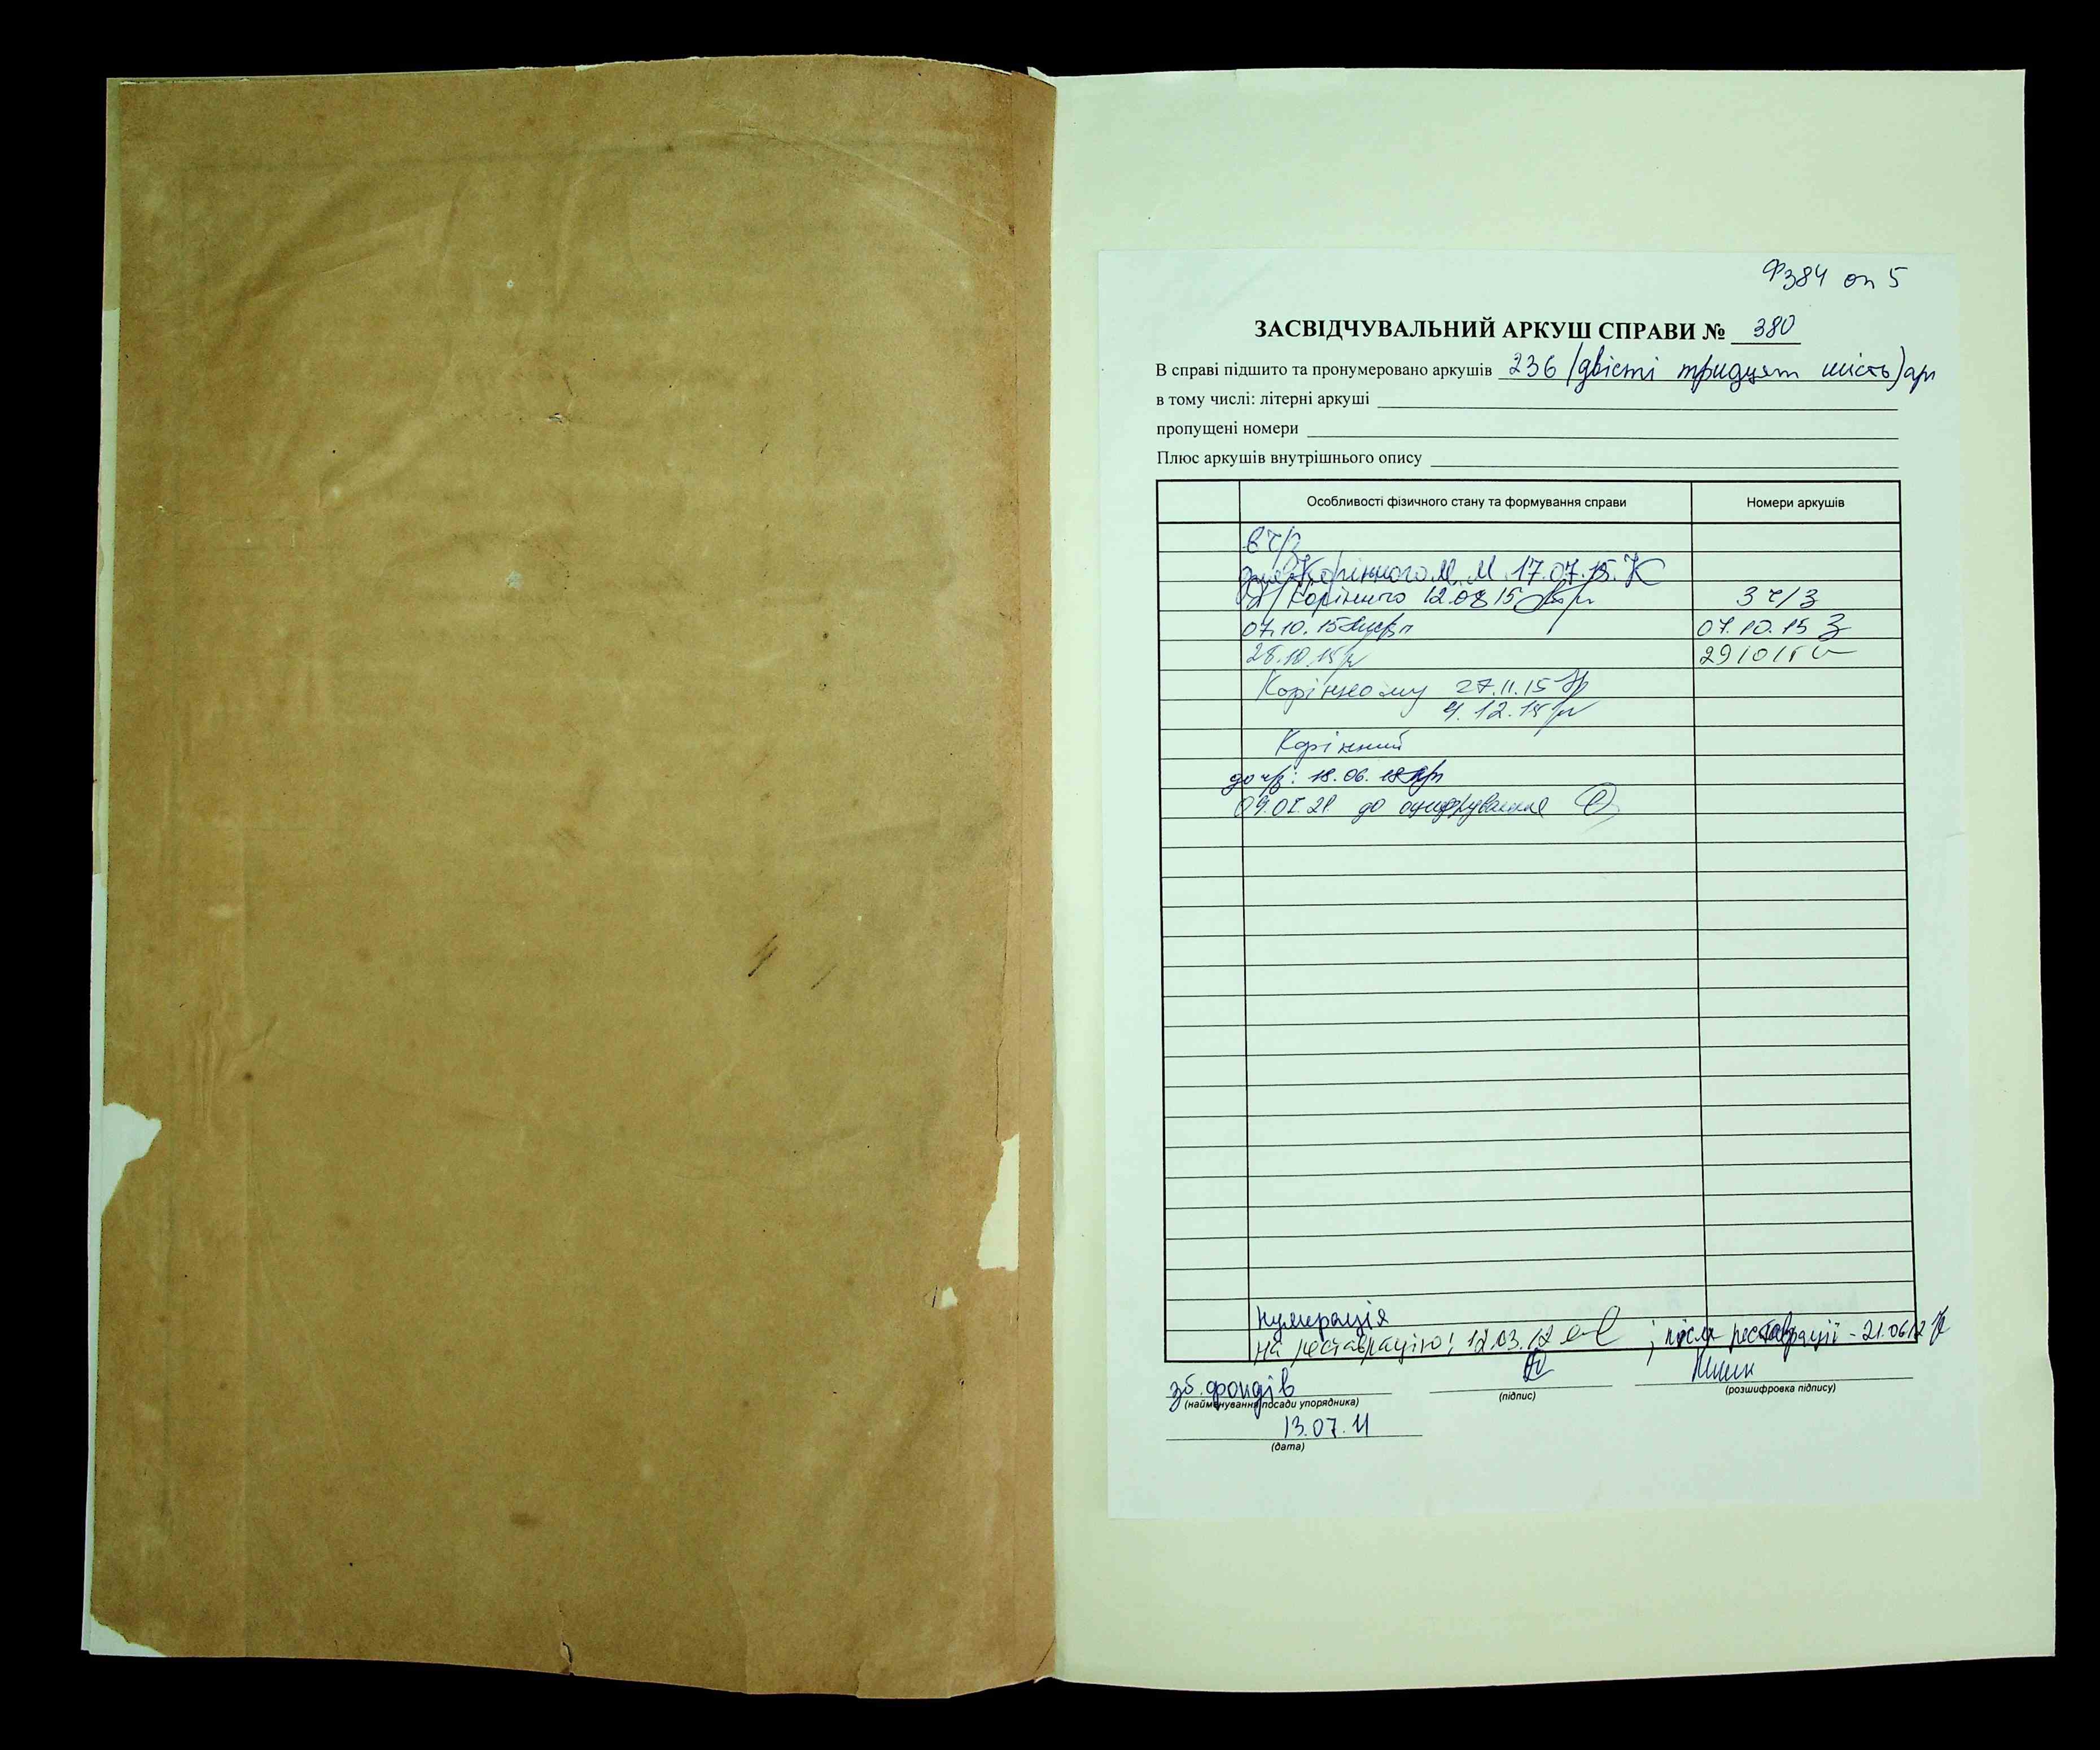 Ф384 оп 5
ЗАСВІДЧУВАЛЬНИЙ АРКУШ СПРАВИ № 380
В справі підшито та пронумеровано аркушів 236 (двісті тридцят шість) арк
в тому числі: літерні аркуші
пропущені номери
Плюс аркушів внутрішнього опису
Особливості фізичного стану та формування справи Номери аркушів
в ч/з
для Корінного М. М. 17.07.15.
Корінного 12.08 15 З ч/з
07.10.15 07.10.15 З
28.10.15 291015
Корінному 27.11.15
4.12.15
Корінний
до ч/з: 18.06.18
09.07.21 до оцифрування
Нумерація
На реставрацію! 12.03.12 ; після реставрації - 21.0612
зб. фондів
(найменування посади упорядника) (підпис) (розшифровка підпису)
13.07.11
(дата)